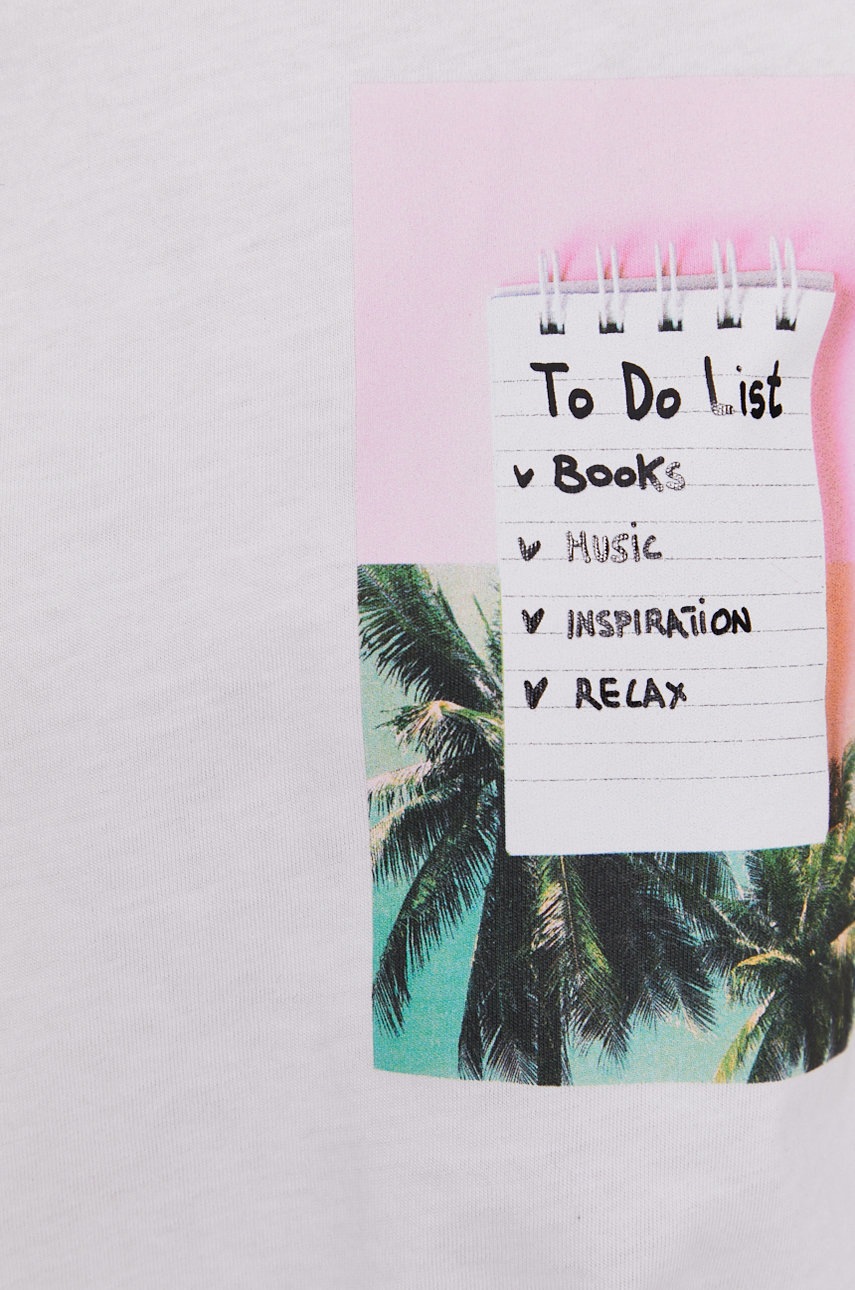 To Do List
Books
Music
INSPIRATION
RELAX